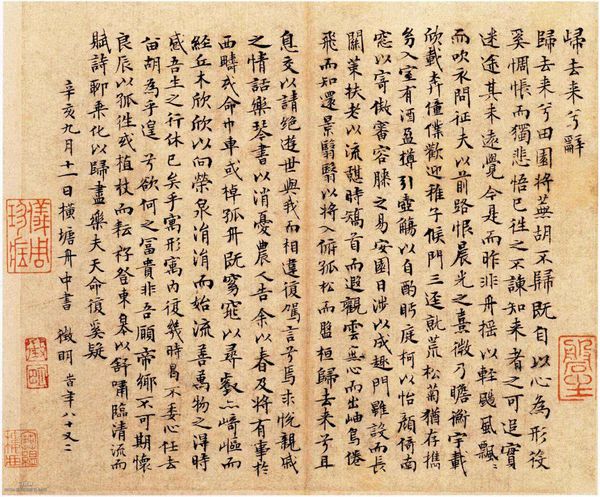 歸去来兮辭
歸去来兮田園将蕪胡不歸既自以心為形役
奚惆悵而獨悲悟已往之不諫知来者之可追實
迷途其未遠覺今是而昨非舟揺以輕颺風飄〻
而吹衣問征夫以前路恨晨光之熹微乃瞻衡宇載
欣載奔僮僕歡迎稚子候門三逕就荒松菊猶存携
幼入室有酒盈樽引壺觴以自酌眄庭柯以怡顔倚南
窓以寄傲審容膝之易安園日涉以成趣門雖設而長
關策扶老以流憇時矯首而遐觀雲無心而出岫鳥倦
飛而知還景翳翳以将入撫孤松而盤桓歸去来兮且
息交以請絶遊世與我而相違復駕言兮焉求悅親戚
之情話樂琴書以消憂農人告余以春及将有事於
西疇或命巾車或棹孤舟既窈窕以尋壑亦崎嶇而
經丘木欣欣以向榮泉涓涓而始流善萬物之得時
感吾生之行休已矣乎寓形寓内復幾時曷不委心任去
留胡為乎遑〻兮欲何之富貴非吾願帝鄉不可期懷
良辰以孤往或植杖而耘耔登東皋以舒嘯臨清流而
賦詩聊乘化以歸盡樂夫天命復奚疑
辛亥九月十二日横塘舟中書 徵明 旹年八十又二
儀周珍藏
徵明